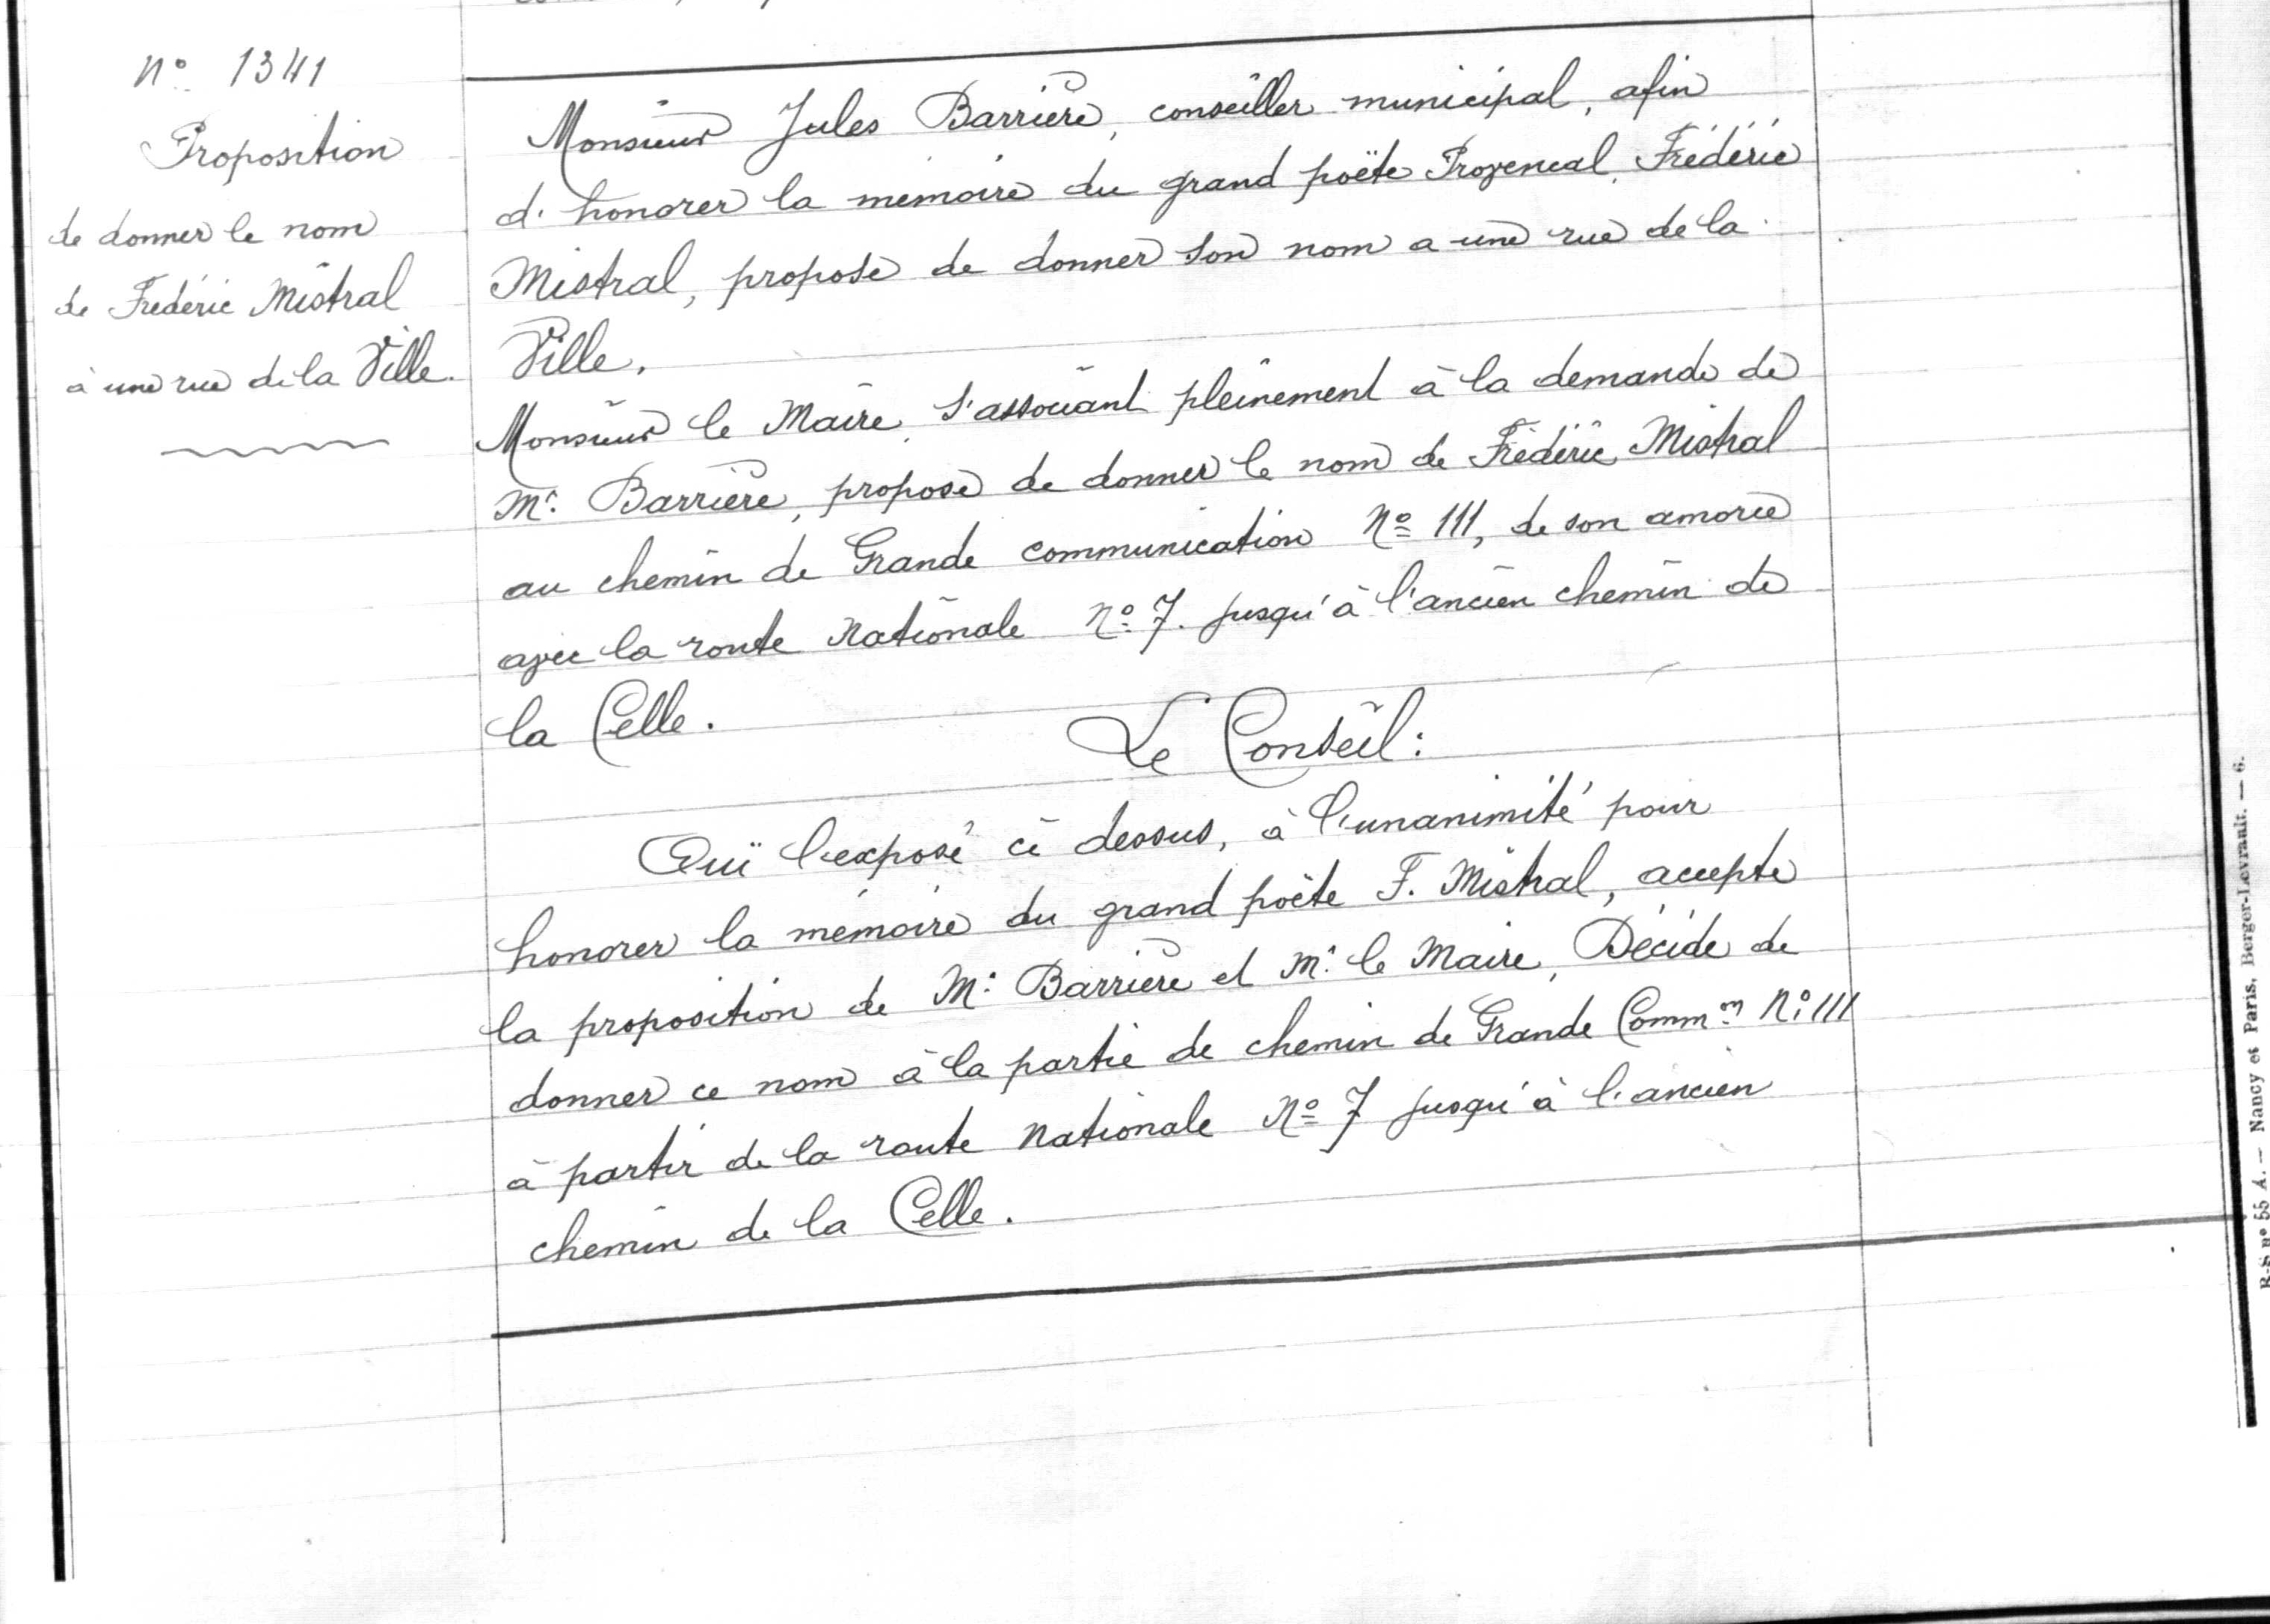 N° 1341
Proposition
de donner le nom
de Frédéric Mistral
à une rue de la Ville.
Monsieur Jules Barrière, conseiller municipal, afin
d'honorer la mémoire du grand poëte Provencal, Frédéric
Mistral, propose de donner son nom a une rue de la
Ville.
Monsieur le Maire, s'associant pleinement à la demande de
Mr. Barrière, propose de donner le nom de Frédéric Mistral
au chemin de Grande communication N° 111, de son amorce
avec la route Nationale N° 7. jusqu'à l'ancien chemin de
la Celle.
Le Conseil:
Ouï l'exposé ci dessus, à l'unanimité pour
honorer la mémoire du grand poëte F. Mistral, accepte
la proposition de Mr Barrière et Mr le Maire, Décide de
donner ce nom à la partie de chemin de Grande Common N° 111
à partir de la route Nationale N° 7 jusqu'à l'ancien
chemin de la Celle.
R-S n° 55 A. — Nancy et Paris, Berger-Levrault. — 6.